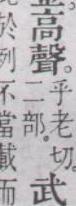 高聲。乎老切。武
二部。
於列不當載而